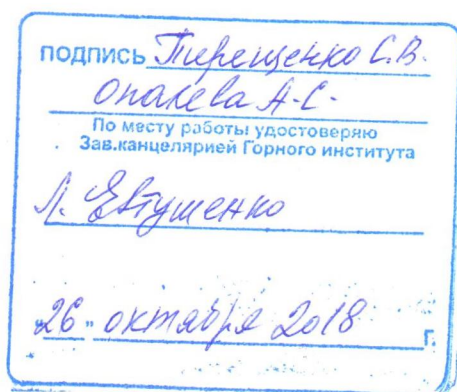 подпись Терещенко С.В.
Опалева А.С.
По месту работы удостоверяю
Зав.канцелярией Горного института
Л. Евтушенко
"26" октября 2018 г.